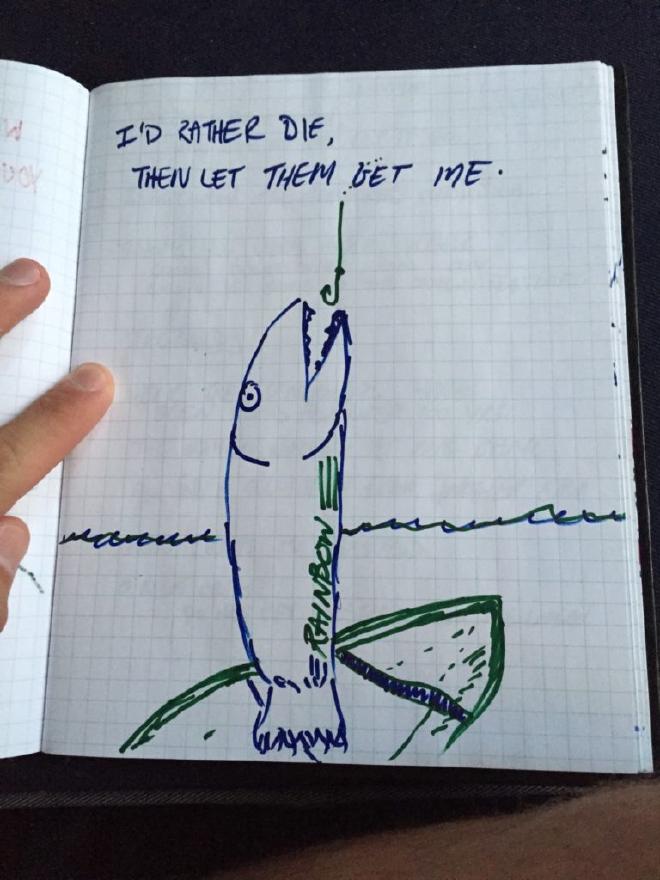 I'D RATHER DIE,
THEN LET THEM GET ME.
RAINBOW